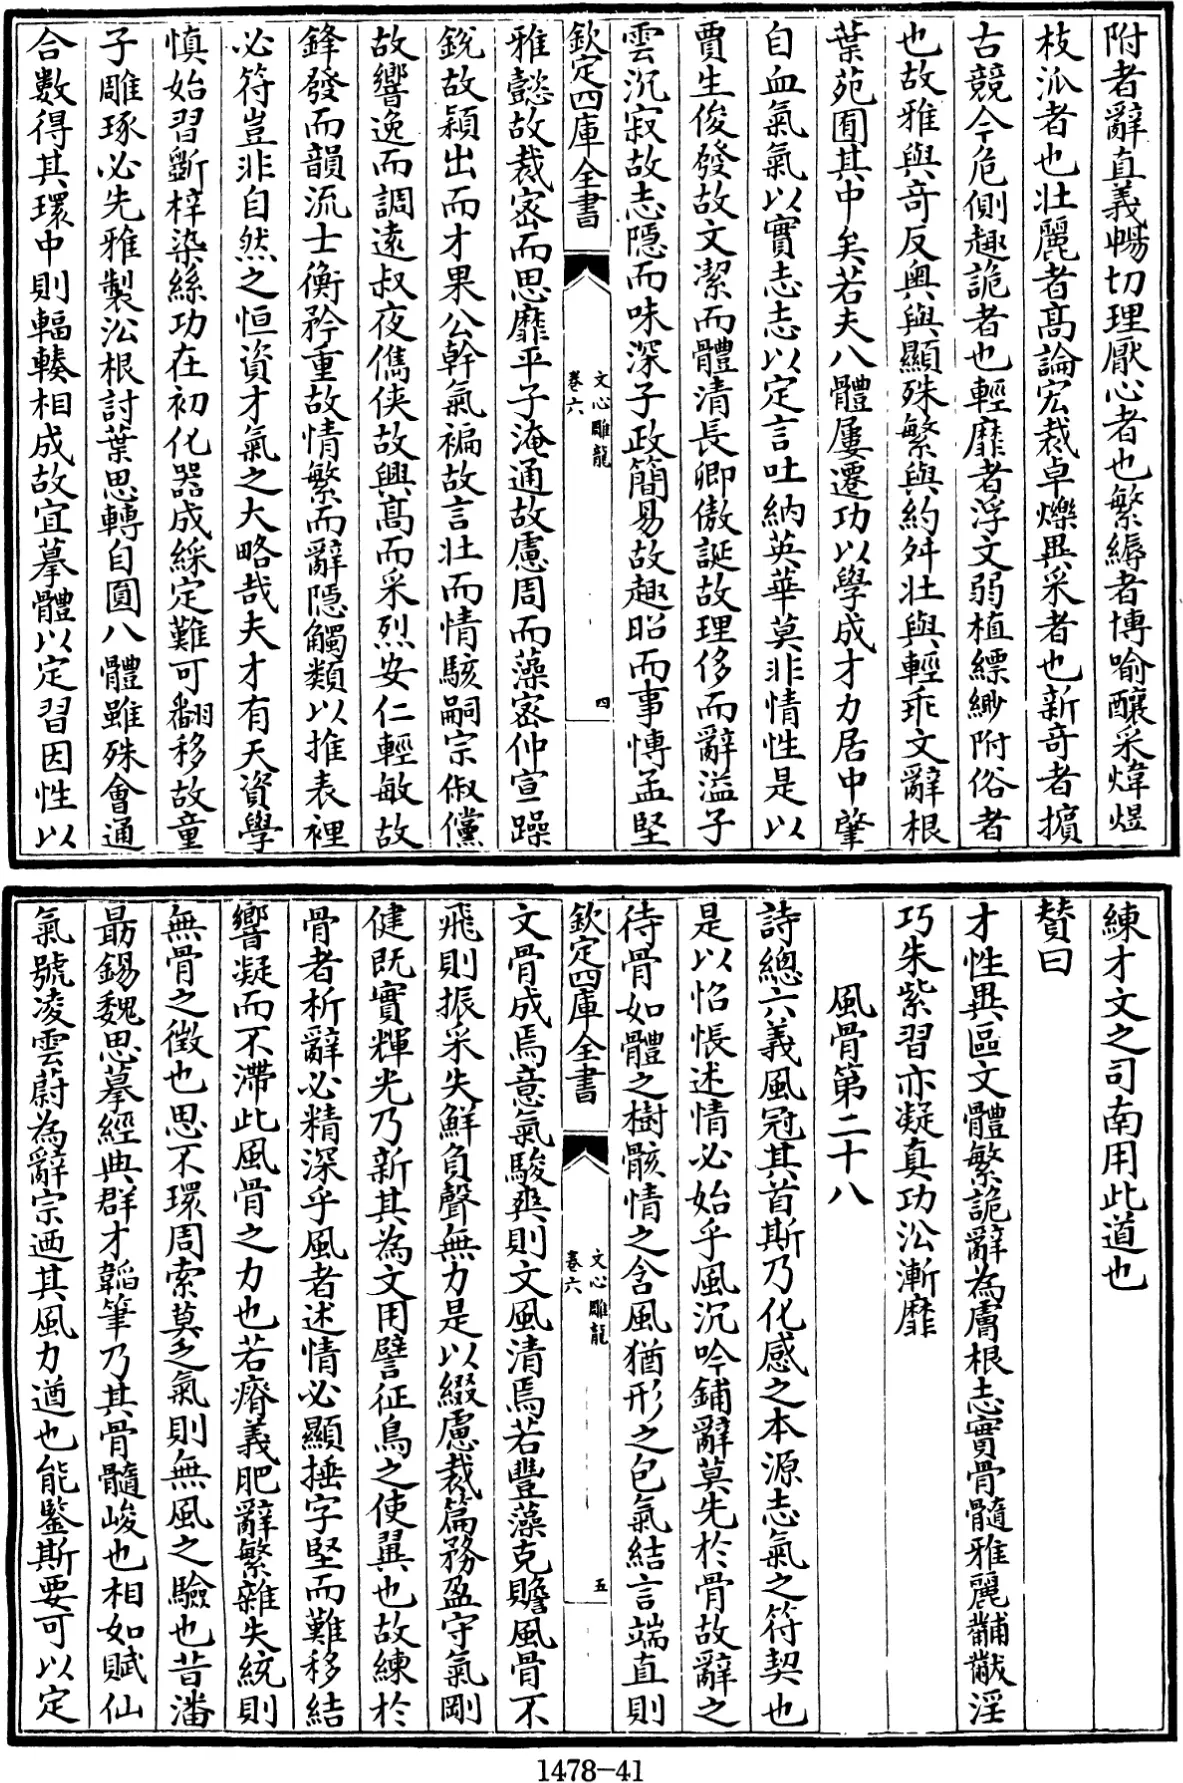 附者辭直義暢切理厭心者也繁縟者博喻釀采煒煜
枝泒者也壯麗者髙論宏裁卓爍異采者也新竒者擯
古競今危側趣詭者也輕靡者浮文弱植縹緲附俗者
也故雅與竒反奥與顯殊繁與約舛壯與輕乖文辭根
葉苑囿其中矣若夫八體屢遷功以學成才力居中肇
自血氣氣以實志志以定言吐納英華莫非情性是以
賈生俊發故文潔而體清長卿傲誕故理侈而辭溢子
雲沉寂故志隠而味深子政簡易故趣昭而事博孟堅
欽定四庫全書
文心雕龍
卷六
四
雅懿故裁宻而思靡平子淹通故慮周而藻宻仲宣躁
銳故穎出而才果公幹氣褊故言壯而情駭嗣宗俶儻
故響逸而調逺叔夜儁侠故興髙而采烈安仁輕敏故
鋒發而韻流士衡矜重故情繁而辭隠觸類以推表裡
必符豈非自然之恒資才氣之大略哉夫才有天資學
慎始習斵梓染絲功在初化器成綵定難可翻移故童
子雕琢必先雅製沿根討葉思轉自圓八體雖殊會通
合數得其環中則輻輳相成故宜摹體以定習因性以
練才文之司南用此道也
贊曰
才性異區文體繁詭辭為膚根志實骨髓雅麗黼黻淫
巧朱紫習亦凝真功沿漸靡
風骨第二十八
詩總六義風冠其首斯乃化感之本源志氣之符契也
是以怊悵述情必始乎風沉吟鋪辭莫先於骨故辭之
待骨如體之樹骸情之含風猶形之包氣結言端直則
欽定四庫全書
文心雕龍
卷六
五
文骨成焉意氣駿爽則文風清焉若豐藻克贍風骨不
飛則振采失鮮負聲無力是以綴慮裁篇務盈守氣剛
健既實輝光乃新其為文用譬征鳥之使翼也故練於
骨者析辭必精深乎風者述情必顯捶字堅而難移結
響凝而不滯此風骨之力也若瘠義肥辭繁雜失統則
無骨之徴也思不環周索莫乏氣則無風之驗也昔潘
勗錫魏思摹經典群才韜筆乃其骨髓峻也相如賦仙
氣號凌雲蔚為辭宗迺其風力遒也能鑒斯要可以定
1478-41